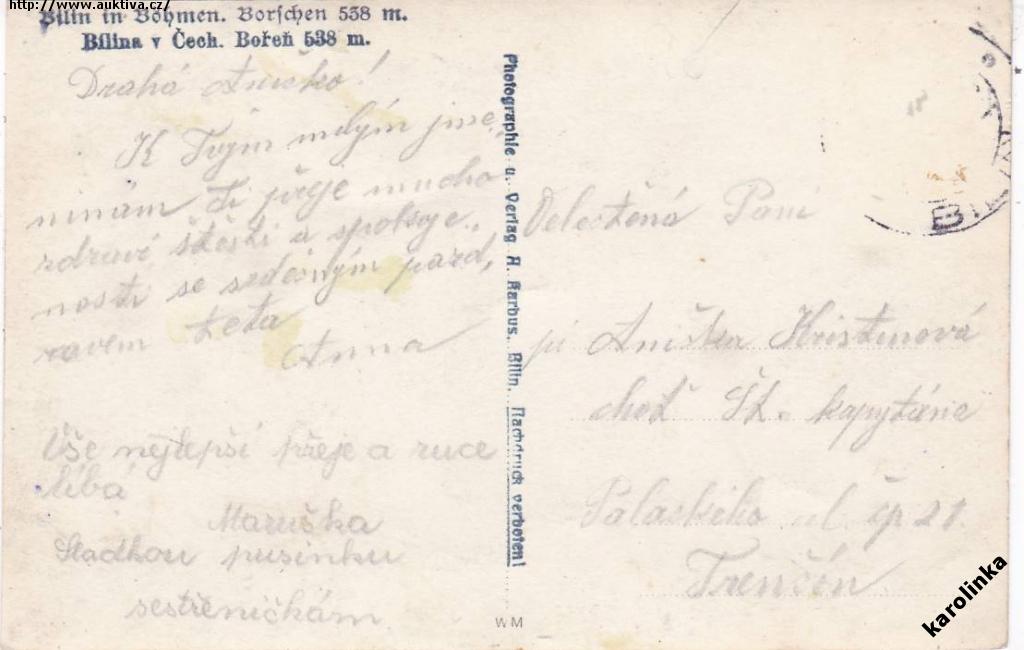 http://www.auktiva.cz/
Bilin in Böhmen. Borschen 538 m.
Bílina v Čech. Bořeň 538 m.
Drahá Aničko!
K Tvým milým jme
ninám Ti přeje mnoho
zdraví štěstí a spokoje
nosti se srdečným pozd,
ravem teta
Anna
Vše nejlepší přeje a ruce
líbá
Maruška
Sladkou pusinku
sestřeničkám
Photographie u. Verlag A. Barbus. Bilin. Nachdruck verboten!
Velectěná Paní
pí Anička Kristinová
choť Št. kapytána
Palackého ul čp 21.
Trenčín
BI
WM
karolinka